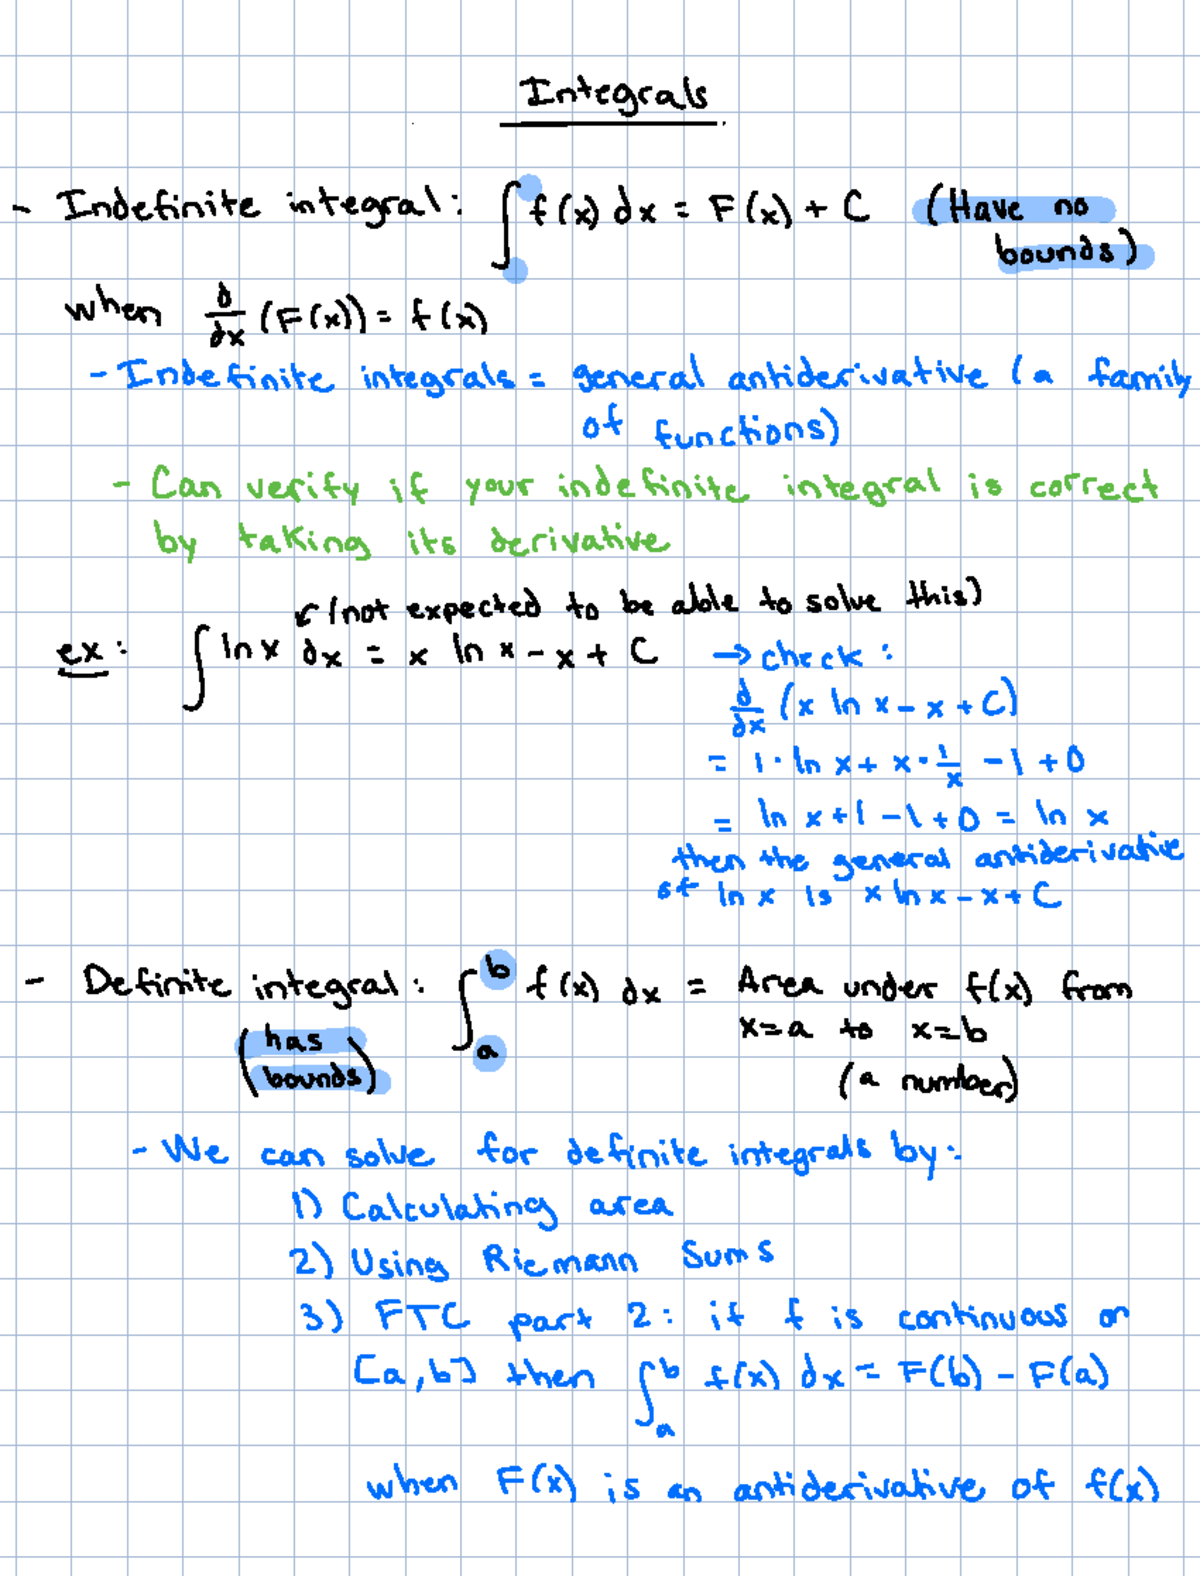 Integrals
- Indefinite integral: ∫ f(x) dx = F(x) + C (Have no
bounds)
when d/dx (F(x)) = f(x)
- Indefinite integrals = general antiderivative (a family
of functions)
- Can verify if your indefinite integral is correct
by taking its derivative
↙ (not expected to be able to solve this)
ex: ∫ ln x dx = x ln x - x + C → check:
d/dx (x ln x - x + C)
= 1 · ln x + x · 1/x - 1 + 0
= ln x + 1 - 1 + 0 = ln x
then the general antiderivative
of ln x is x ln x - x + C
- Definite integral: ∫_a^b f(x) dx = Area under f(x) from
(has bounds) x=a to x=b
(a number)
- We can solve for definite integrals by:
1) Calculating area
2) Using Riemann Sums
3) FTC part 2: if f is continuous on
[a,b] then ∫_a^b f(x) dx = F(b) - F(a)
when F(x) is an antiderivative of f(x)